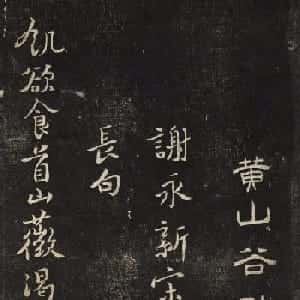 黄山谷
謝永新宋
長句
飢欲食首山薇渴